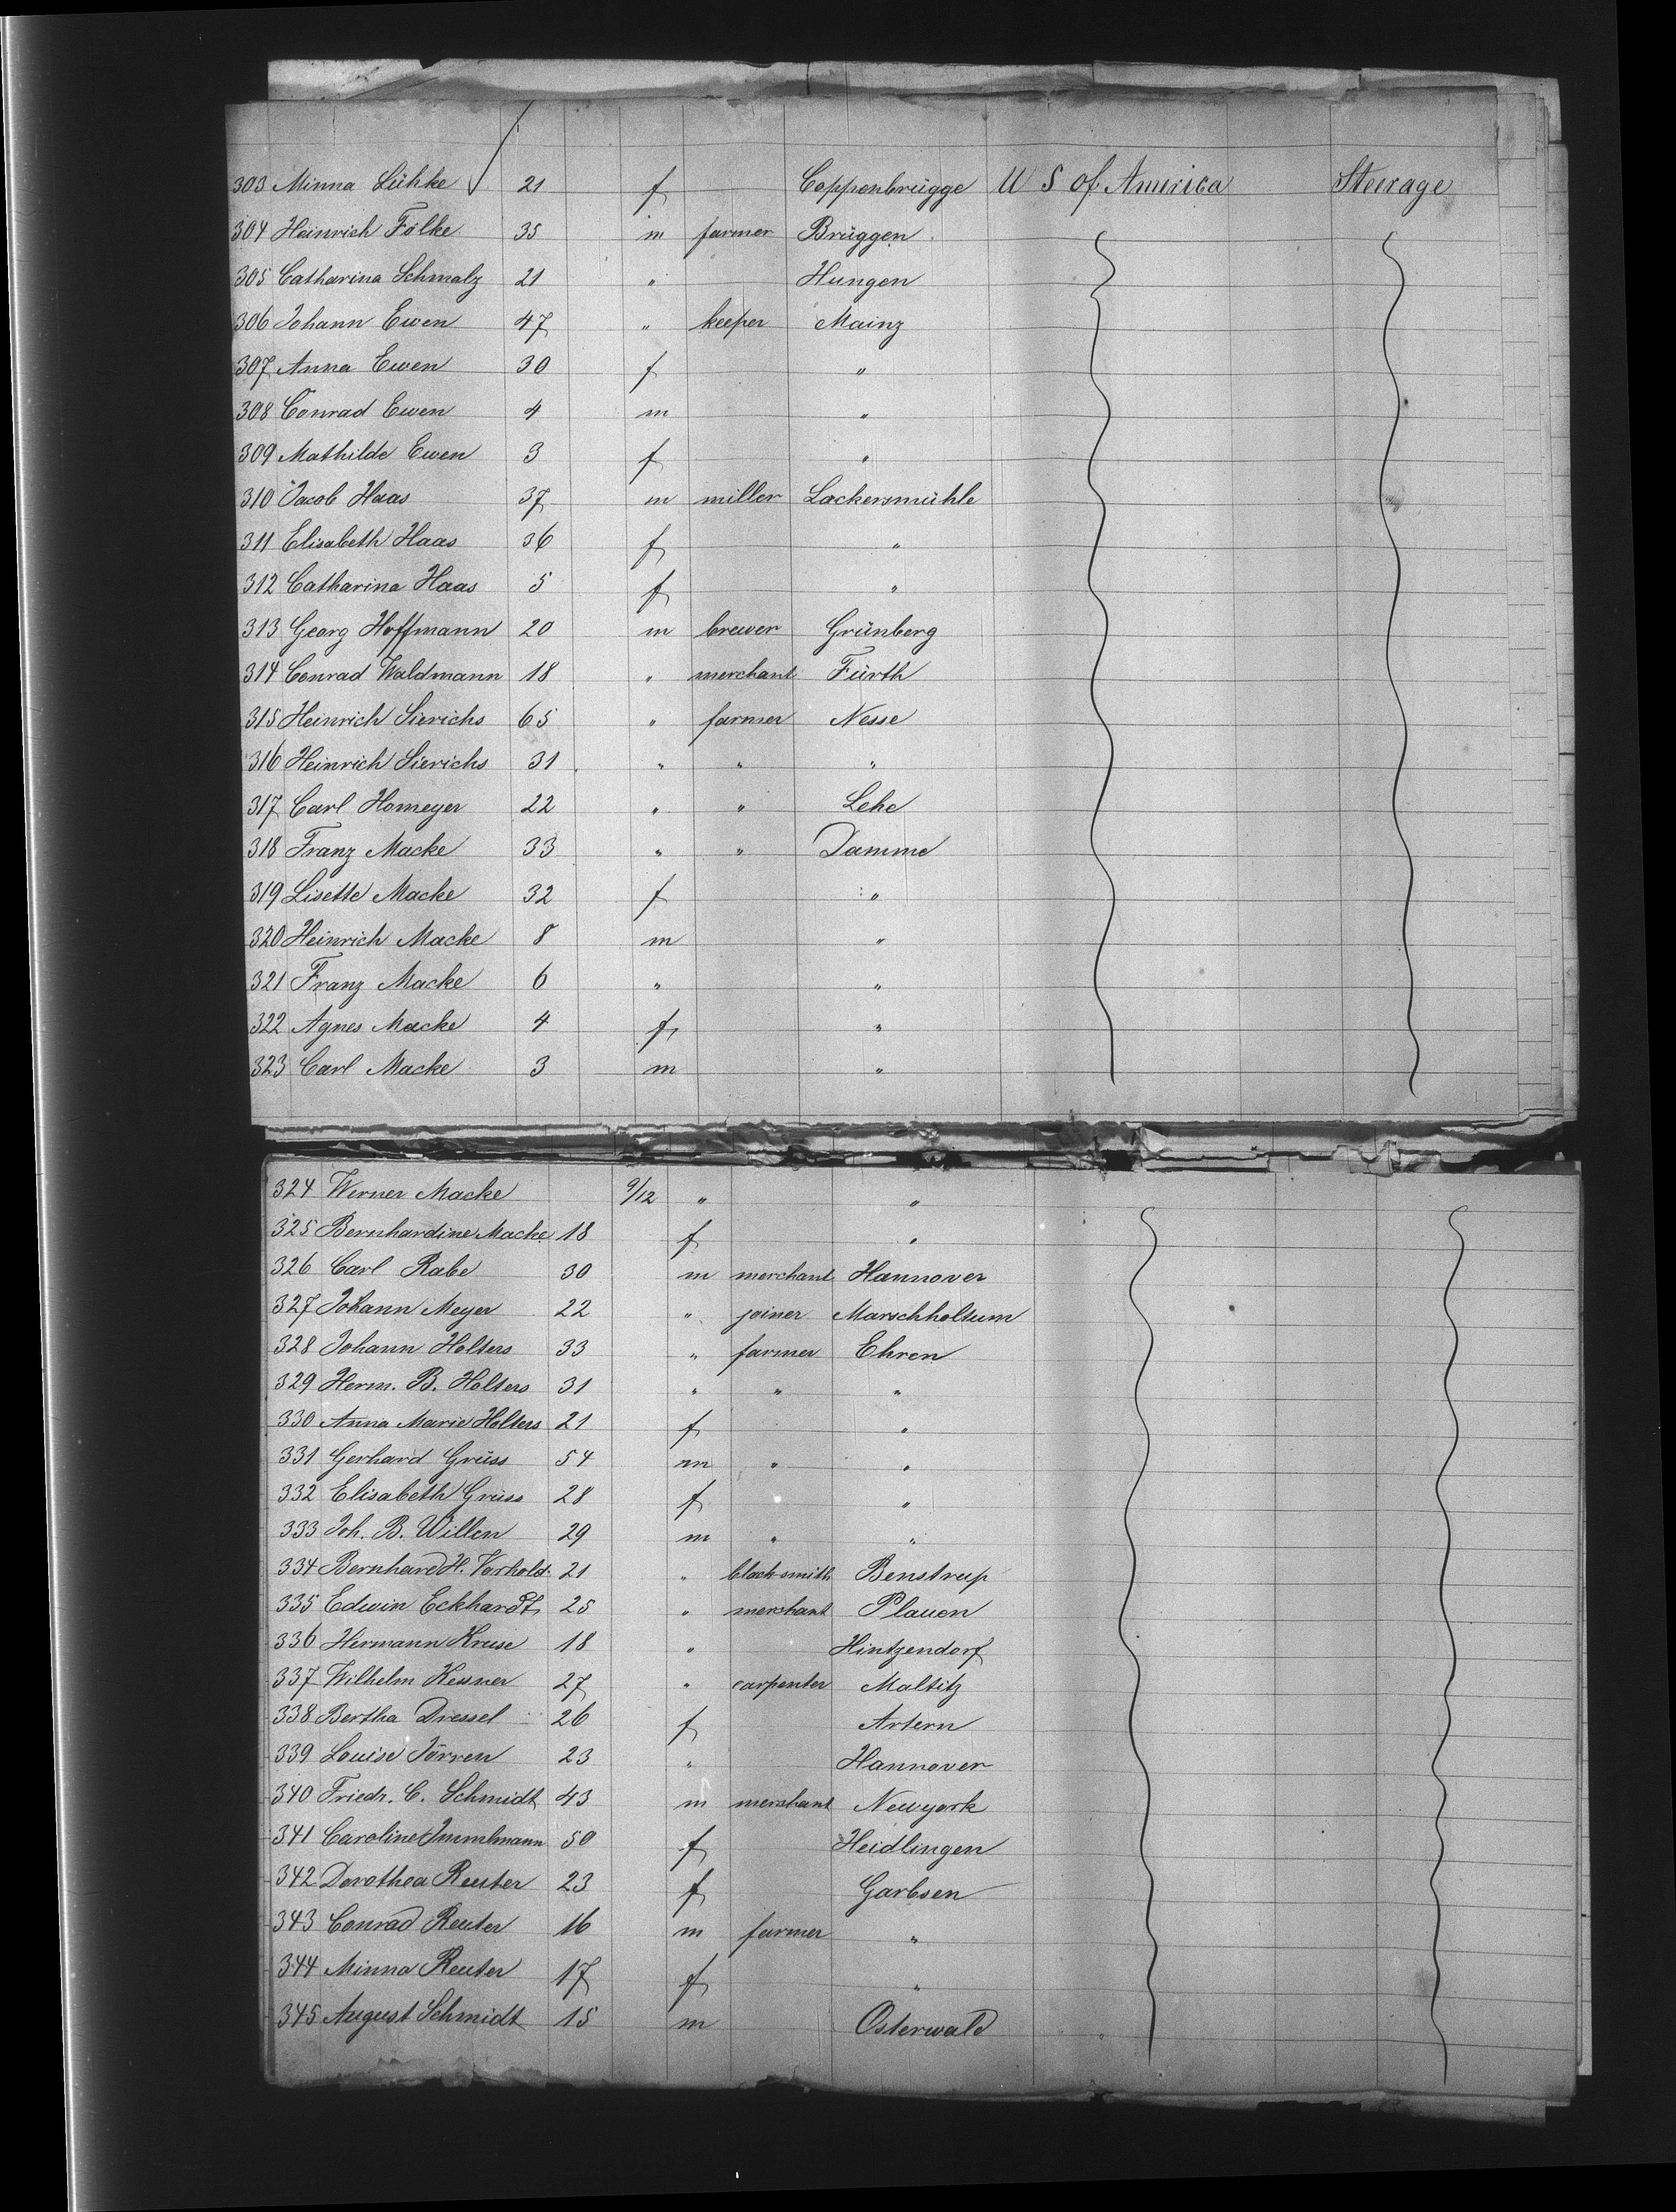 303 Minna Lühke 21 f Coppenbrügge U S of America Steerage
304 Heinrich Fölke 35 m farmer Brüggen
305 Catharina Schmalz 21 " Hungen
306 Johann Ewen 47 " keeper Mainz
307 Anna Ewen 30 f "
308 Conrad Ewen 4 m "
309 Mathilde Ewen 3 f "
310 Jacob Haas 37 m miller Lackersmühle
311 Elisabeth Haas 36 f "
312 Catharina Haas 5 f "
313 Georg Hoffmann 20 m brewer Grünberg
314 Conrad Waldmann 18 " merchant Fürth
315 Heinrich Sierichs 65 " farmer Nesse
316 Heinrich Sierichs 31 " " "
317 Carl Homeyer 22 " " Lehe
318 Franz Macke 33 " " Damme
319 Lisette Macke 32 f "
320 Heinrich Macke 8 m "
321 Franz Macke 6 " "
322 Agnes Macke 4 f "
323 Carl Macke 3 m "
324 Werner Macke 9/12 " "
325 Bernhardine Macke 18 f "
326 Carl Rabe 30 m merchant Hannover
327 Johann Meyer 22 " joiner Marschholsum
328 Johann Holters 33 " farmer Ehren
329 Herm. B. Holters 31 " " "
330 Anna Marie Holters 21 f "
331 Gerhard Grüss 54 m " "
332 Elisabeth Grüss 28 f "
333 Joh. B. Willen 29 m " "
334 Bernhard H. Vorhold 21 " black-smith Benstrup
335 Edwin Eckhardt 25 " merchant Plauen
336 Hermann Kruse 18 " Hintzendorf
337 Wilhelm Kessner 27 " carpenter Maltitz
338 Bertha Dressel 26 f Artern
339 Louise Jörren 23 " Hannover
340 Friedr. C. Schmidt 43 m merchant Newyork
341 Caroline 50 f Heidlingen
342 Dorothea Reuter 23 f Garbsen
343 Conrad Reuter 16 m farmer "
344 Minna Reuter 17 f "
345 August Schmidt 15 m Osterwald